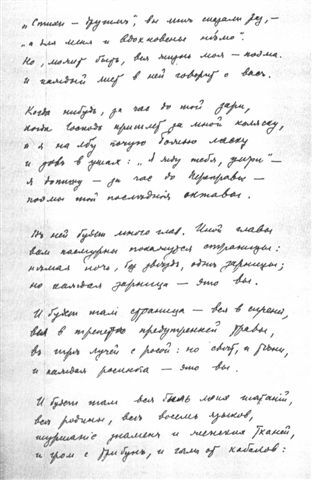 „Стихи – другимъ", вы мнѣ сказали раз, –
„а для меня и вдохновенье нѣмо".
Но, может быть, вся жизнь моя – поэма.
и каждый лист в ней говорит о вас.
Когда нибудь, за час до той зари,
когда Господь пришлет за мной коляску,
и я на лбу почую божью ласку
и зовъ в ушах: „Я жду тебя, умри" –
я допишу – за час до переправы –
поэмы той последнія октавы.
Въ ней будет много глав. Иной главы
вам пасмурны покажутся страницы:
нѣмая ночь, без звѣздъ, одни зарницы;
но каждая зарница – это вы.
И будет там страница – вся в сирени,
вся в трепетѣ предутренней травы,
въ игрѣ лучей с росой: но свѣт, и тѣни,
и каждая росинка – это вы.
И будет там вся быль моих шатаній,
всѣ родины, всѣ восемь языков,
шуршаніе знамен и женских тканей,
и гром с трибун, и кабаков: